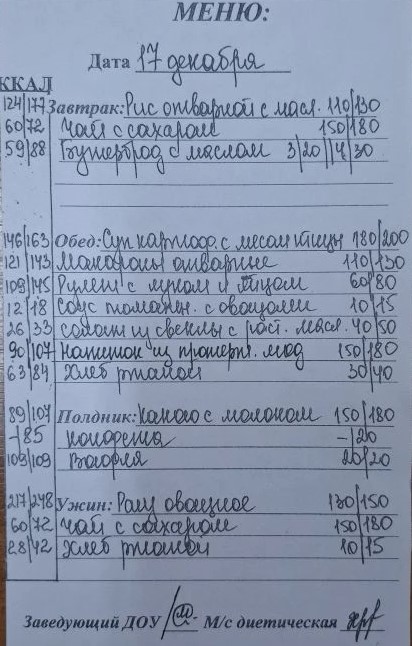 МЕНЮ:
Дата 17 декабря
ККАЛ
124/177 Завтрак: Рис отварной с масл. 110/130
60/72 Чай с сахаром 150/180
59/88 Бутерброд с маслом 3/20//4/30
146/163 Обед: Суп картоф. с мясом птицы 180/200
121/143 Макароны отварные 110/130
109/145 Рулет с луком и яйцом 60/80
12/18 Соус томатн. с овощами 10/15
26/33 салат из свеклы с раст. масл. 40/50
90/107 Напиток из протерт. ягод 150/180
63/84 Хлеб ржаной 30/40
89/107 Полдник: Какао с молоком 150/180
-/85 конфета -/20
109/109 Вафля 20/20
217/248 Ужин: Рагу овощное 130/150
60/72 Чай с сахаром 150/180
28/42 Хлеб ржаной 10/15
Заведующий ДОУ М/с диетическая